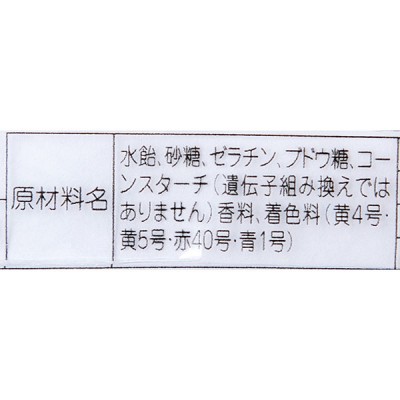 原材料名
水飴、砂糖、ゼラチン、ブドウ糖、コー
ンスターチ(遺伝子組み換えでは
ありません)香料、着色料(黄4号・
黄5号・赤40号・青1号)